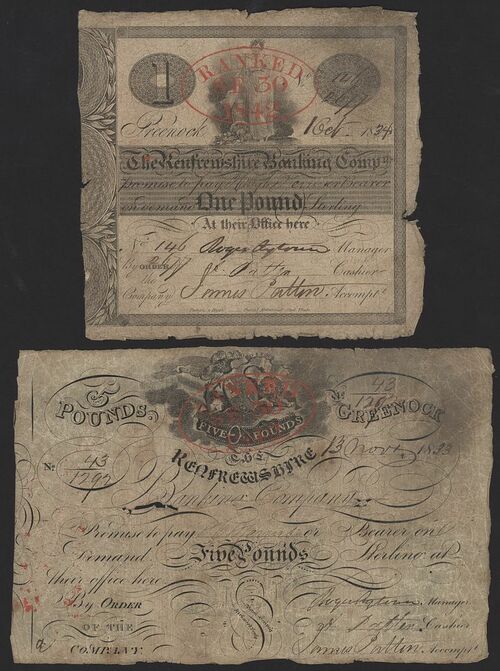 1
RANKED
30
1842
146
Greenock 1 Oct. 1834
The Renfrewshire Banking Compy.
promise to pay
on demand One Pound Sterling
At their Office here
No. 146 Roger Aytoun Manager
By ORDER of Cashier
the
Company James Patten Accompt.
5
POUNDS.
No. 43
1292
GREENOCK
RANKED
FIVE POUNDS
13 Novr. 1833
THE
RENFREWSHIRE
No. 43
1292
Banking Company
Promise to pay or Bearer on
Demand Five Pounds Sterling at
their office here
By ORDER Roger Aytoun Manager
OF THE Cashier
COMPANY James Patten Accompt.